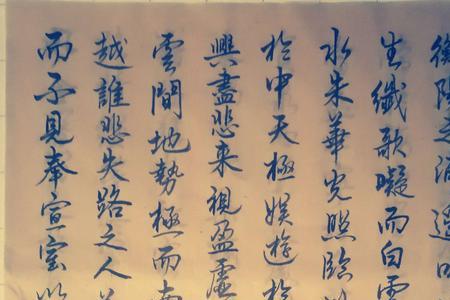 衡陽之浦遙吟
生纖歌凝而白雲
水朱華光照臨
於中天極娱遊於
興盡悲来視盈虛
雲間地勢極而南
越誰悲失路之人
而不見奉宣室以